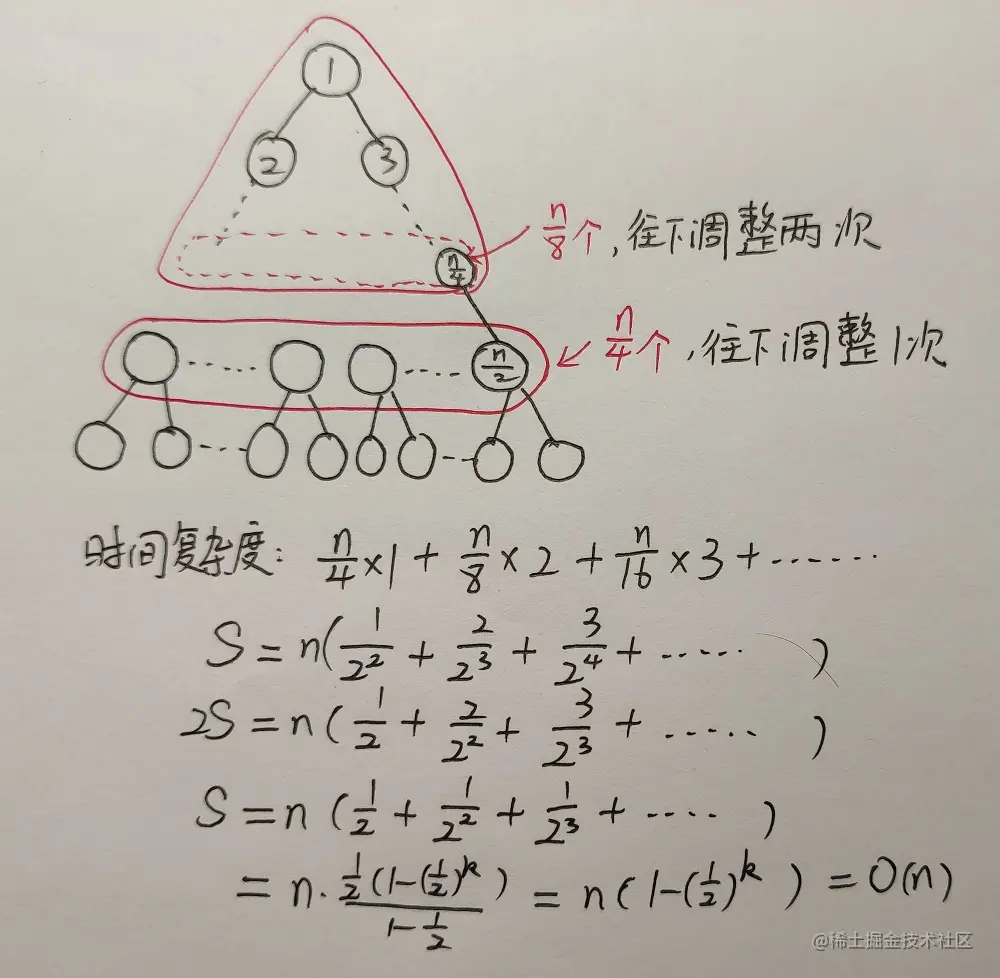 1
2 3
n/8个,往下调整两次
n/4
n/4个,往下调整1次
n/2
时间复杂度: n/4×1 + n/8×2 + n/16×3 + ······
S = n(1/2² + 2/2³ + 3/2⁴ + ······)
2S = n(1/2 + 2/2² + 3/2³ + ······)
S = n(1/2 + 1/2² + 1/2³ + ····)
= n·(1/2(1-(1/2)^k))/(1-1/2) = n(1-(1/2)^k) = O(n)
@稀土掘金技术社区